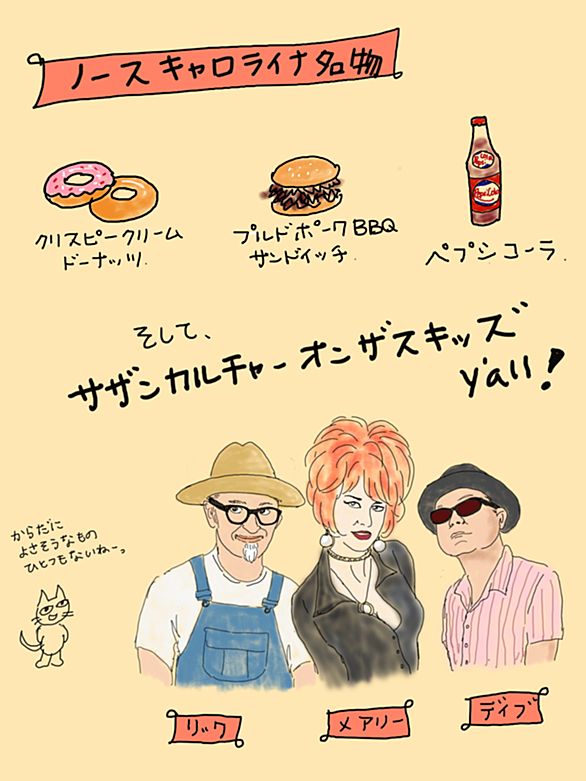 ノースキャロライナ名物
クリスピークリーム
ドーナッツ.
プルドポークBBQ
サンドイッチ.
ペプシコーラ.
そして、
サザンカルチャーオンザスキッズ
y'all!
からだに
よさそうなもの
ひとつもないねーっ
リック
メアリー
デイブ